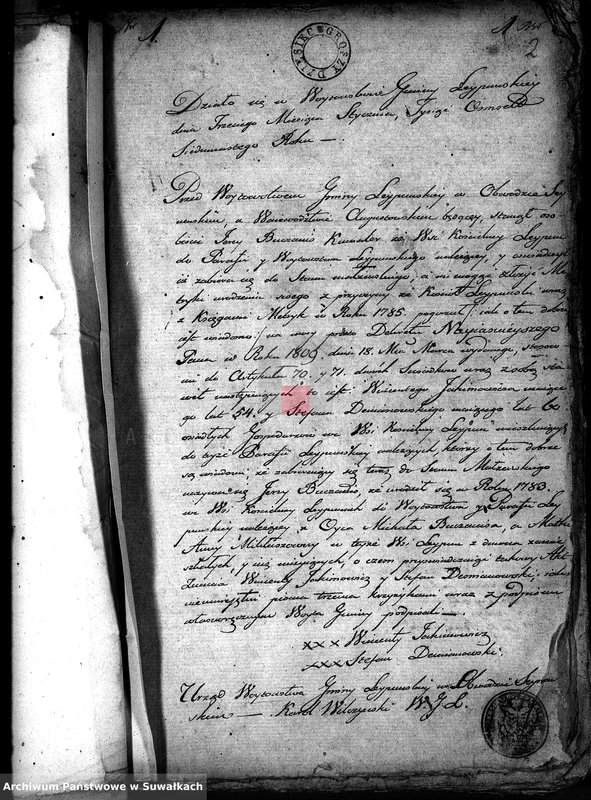 1.
2
DZIESIĘĆ GROSZY
Działo się w Woytowstwie Gminy Leypunskiey
dnia Trzeciego Miesiąca Stycznia, Tysiąc Osmset
Siedmnastego Roku —
Przed Woytowstwem Gminy Leypunskiey w Obwodzie Sey-
neńskim, a Woiewodztwie Augustowskim będącey, stanął oso-
biście Jerzy Buczanis Kawaler ze Wsi Kościelney Leypun
do Parafii y Woytowstwa Leypunskiego należącey, y oswiadczył
iż zabiera się do Stanu małżenskiego, a nie mogąc złożyć Me-
tryki urodzenia swego z przyczyny że Kościół Leypunski wraz
z Księgami Metryk w Roku 1785. pogorzał
iest wiadomo na mocy przeto Dekretu Nayiasnieyszego
Pana w Roku 1809. dnia 18. Mca Marca wydanego, stosow-
nie do Artykułu 70. y 71. dwóch Swiadków wraz z sobą sta-
wił następuiących to iest: Wincentego Jakimowicza maiące-
go lat 54. y Stefana Domanowskiego maiącego lat 60
osiadłych Gospodarzów we Wsi Kościelney Leypun mieszkaiących
do teyże Parafii Leypunskiey należących którzy o tem dobrze
są wiadomi, że zabieraiący się teraz do Stanu Małżenskiego
nazywa się Jerzy Buczanis, że urodził się w Roku 1783.
we Wsi Kościelney Leypunach do Woytowstwa y Parafii Ley-
punskiey należącey z Oyca Michała Buczanisa, a Matki
Anny Mikluszowny w teyże Wsi Leypun z dawna zamie-
szkałych, y
Wincenty Jakimowicz y Stefan Domanowski, iako
nieumieiętni pisma trzema krzyżykami wraz z podpisem
własnoręcznym Woyta Gminy podpisali —
xxx Wincenty Jakimowicz
xxx Stefan Domanowski
Urząd Woytowstwa Gminy Leypunskiey w Obwodzie Seyneń-
skim — Karol Wilczewski W. G. L.
Archiwum Państwowe w Suwałkach